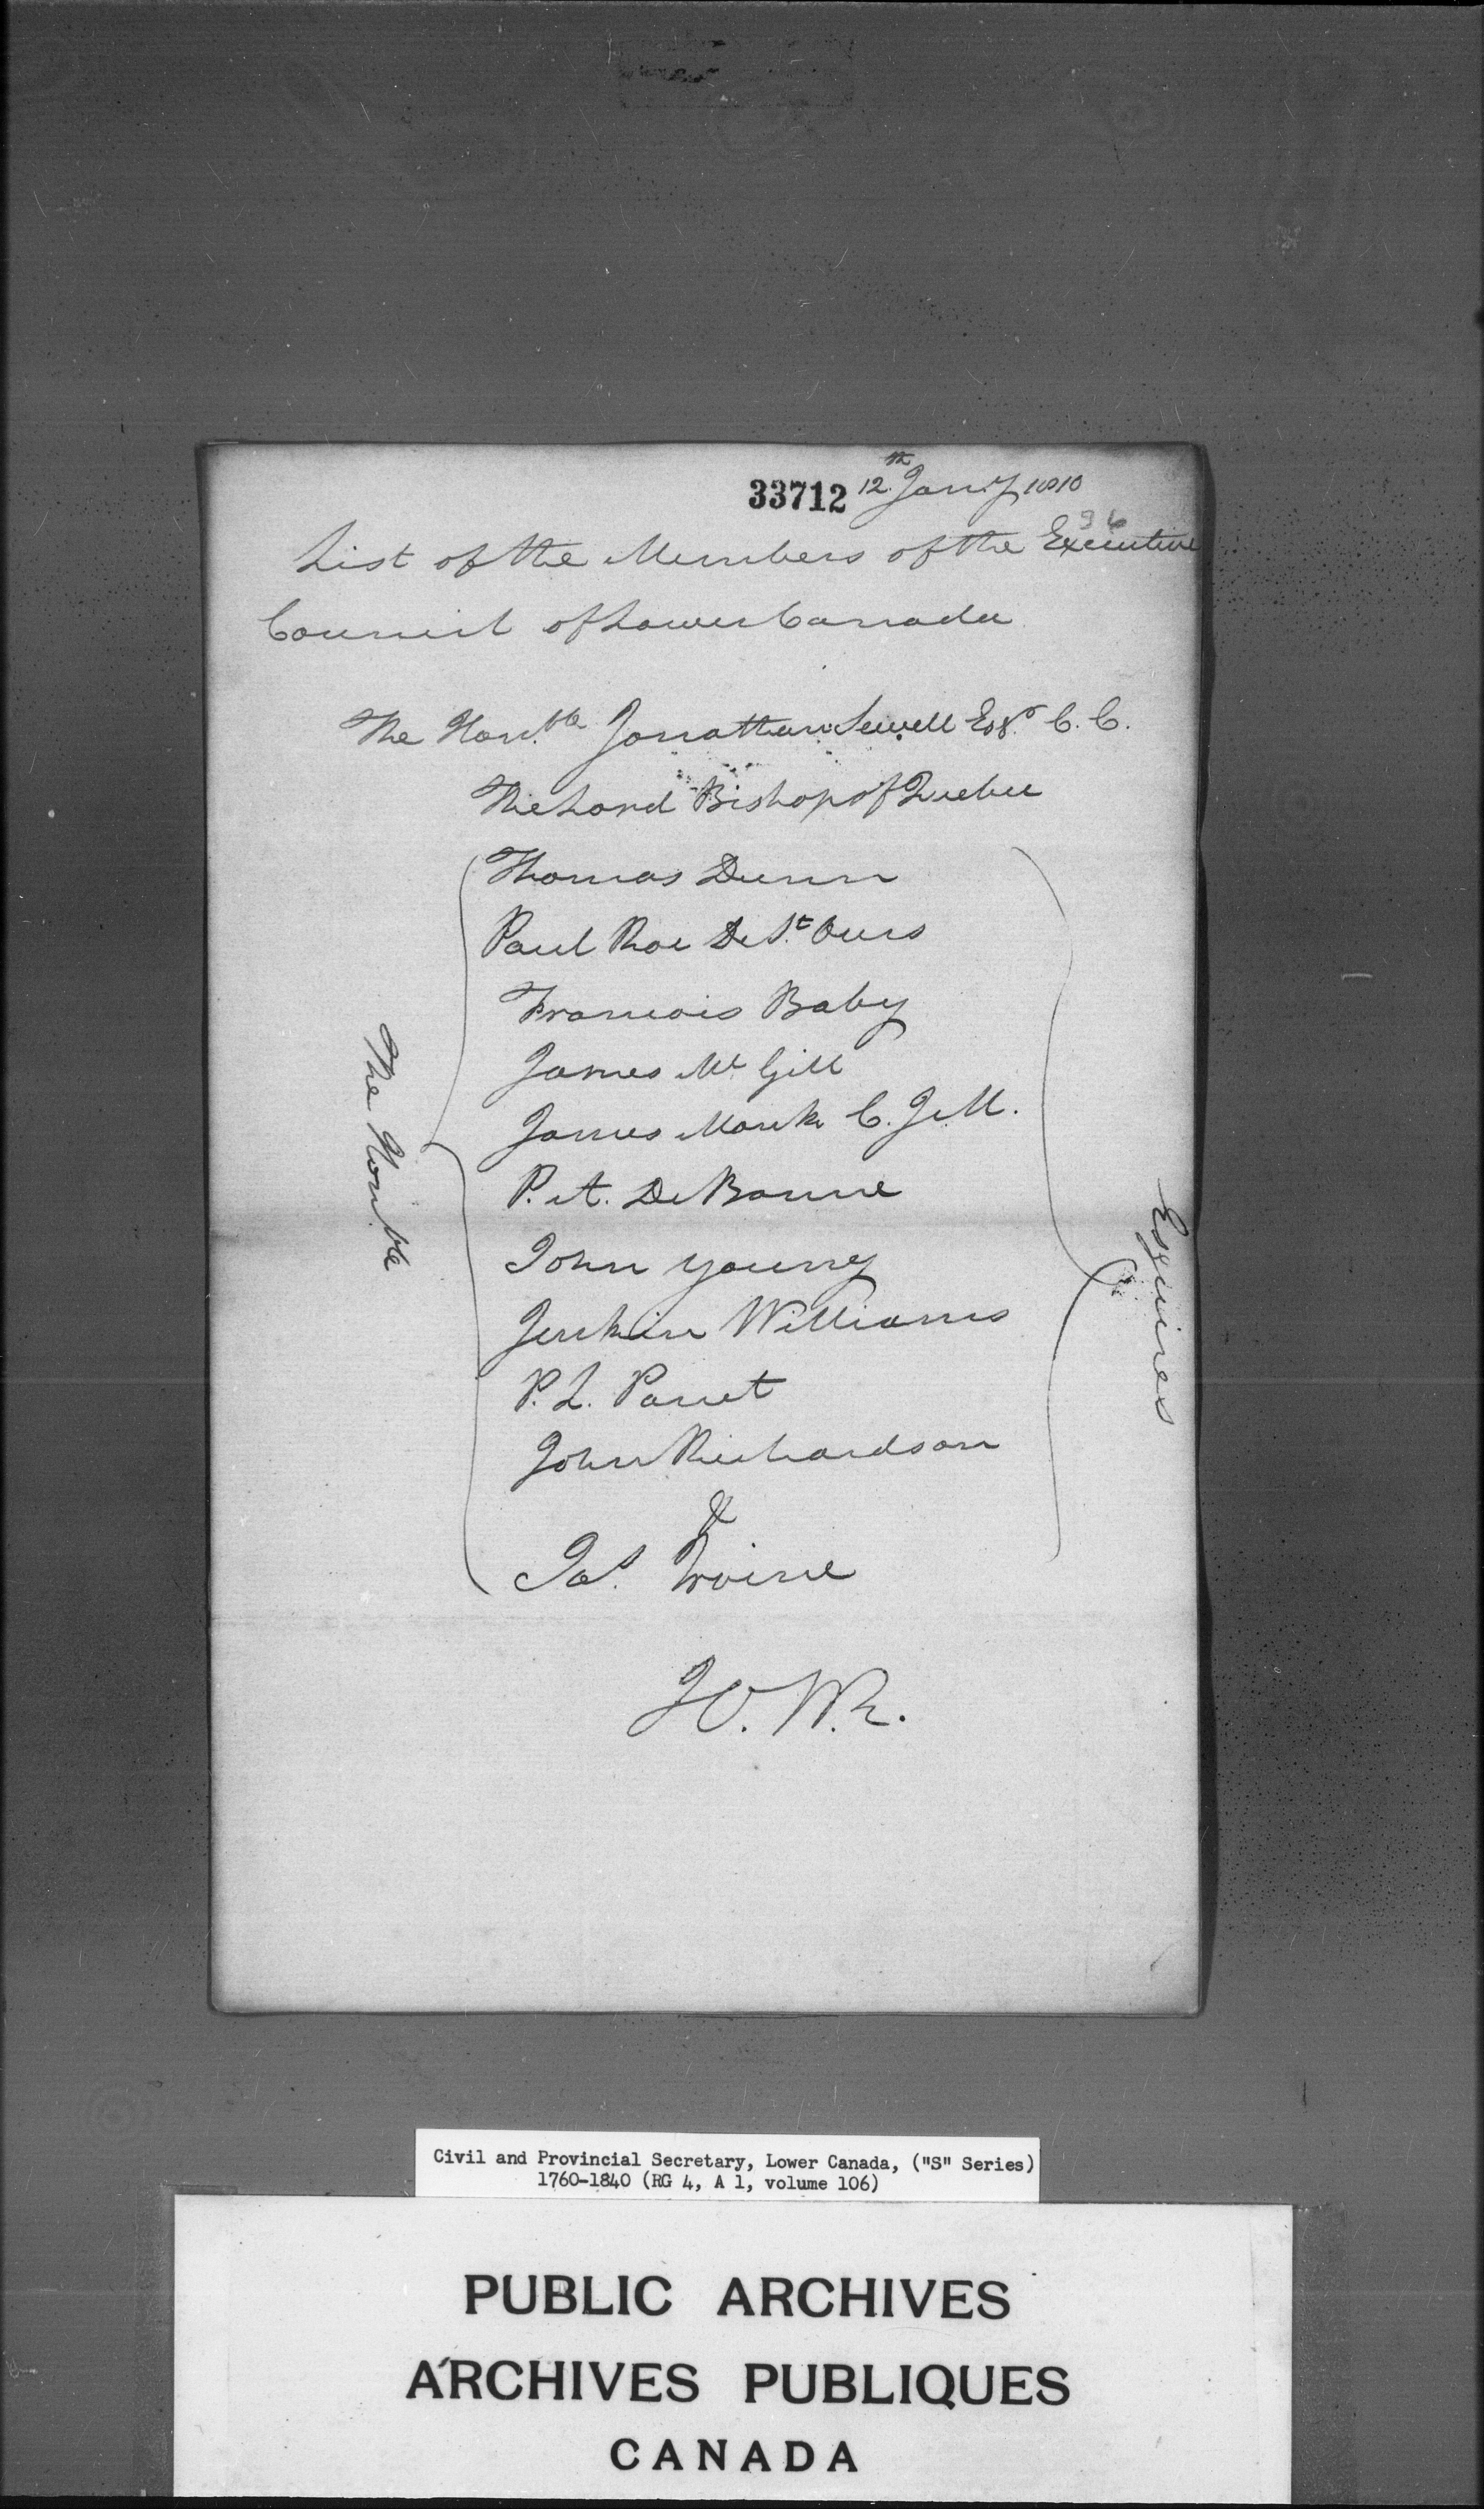 33712 12th Jany 1810
96
List of the Members of the Executive
Council of Lower Canada
The Honble Jonathan Sewell Esqr C. C.
The Lord Bishop of Quebec
Thomas Dunn
Paul Roc De St Ours
Francois Baby
James Mc Gill
James Monk C. J. M.
P. A. De Bonne
John Young
Jenkin Williams
P. L. Panet
John Richardson
&
Jas. Irvine
The Honble
Esquires
H. W. R.
Civil and Provincial Secretary, Lower Canada, ("S" Series)
1760-1840 (RG 4, A 1, volume 106)
PUBLIC ARCHIVES
ARCHIVES PUBLIQUES
CANADA